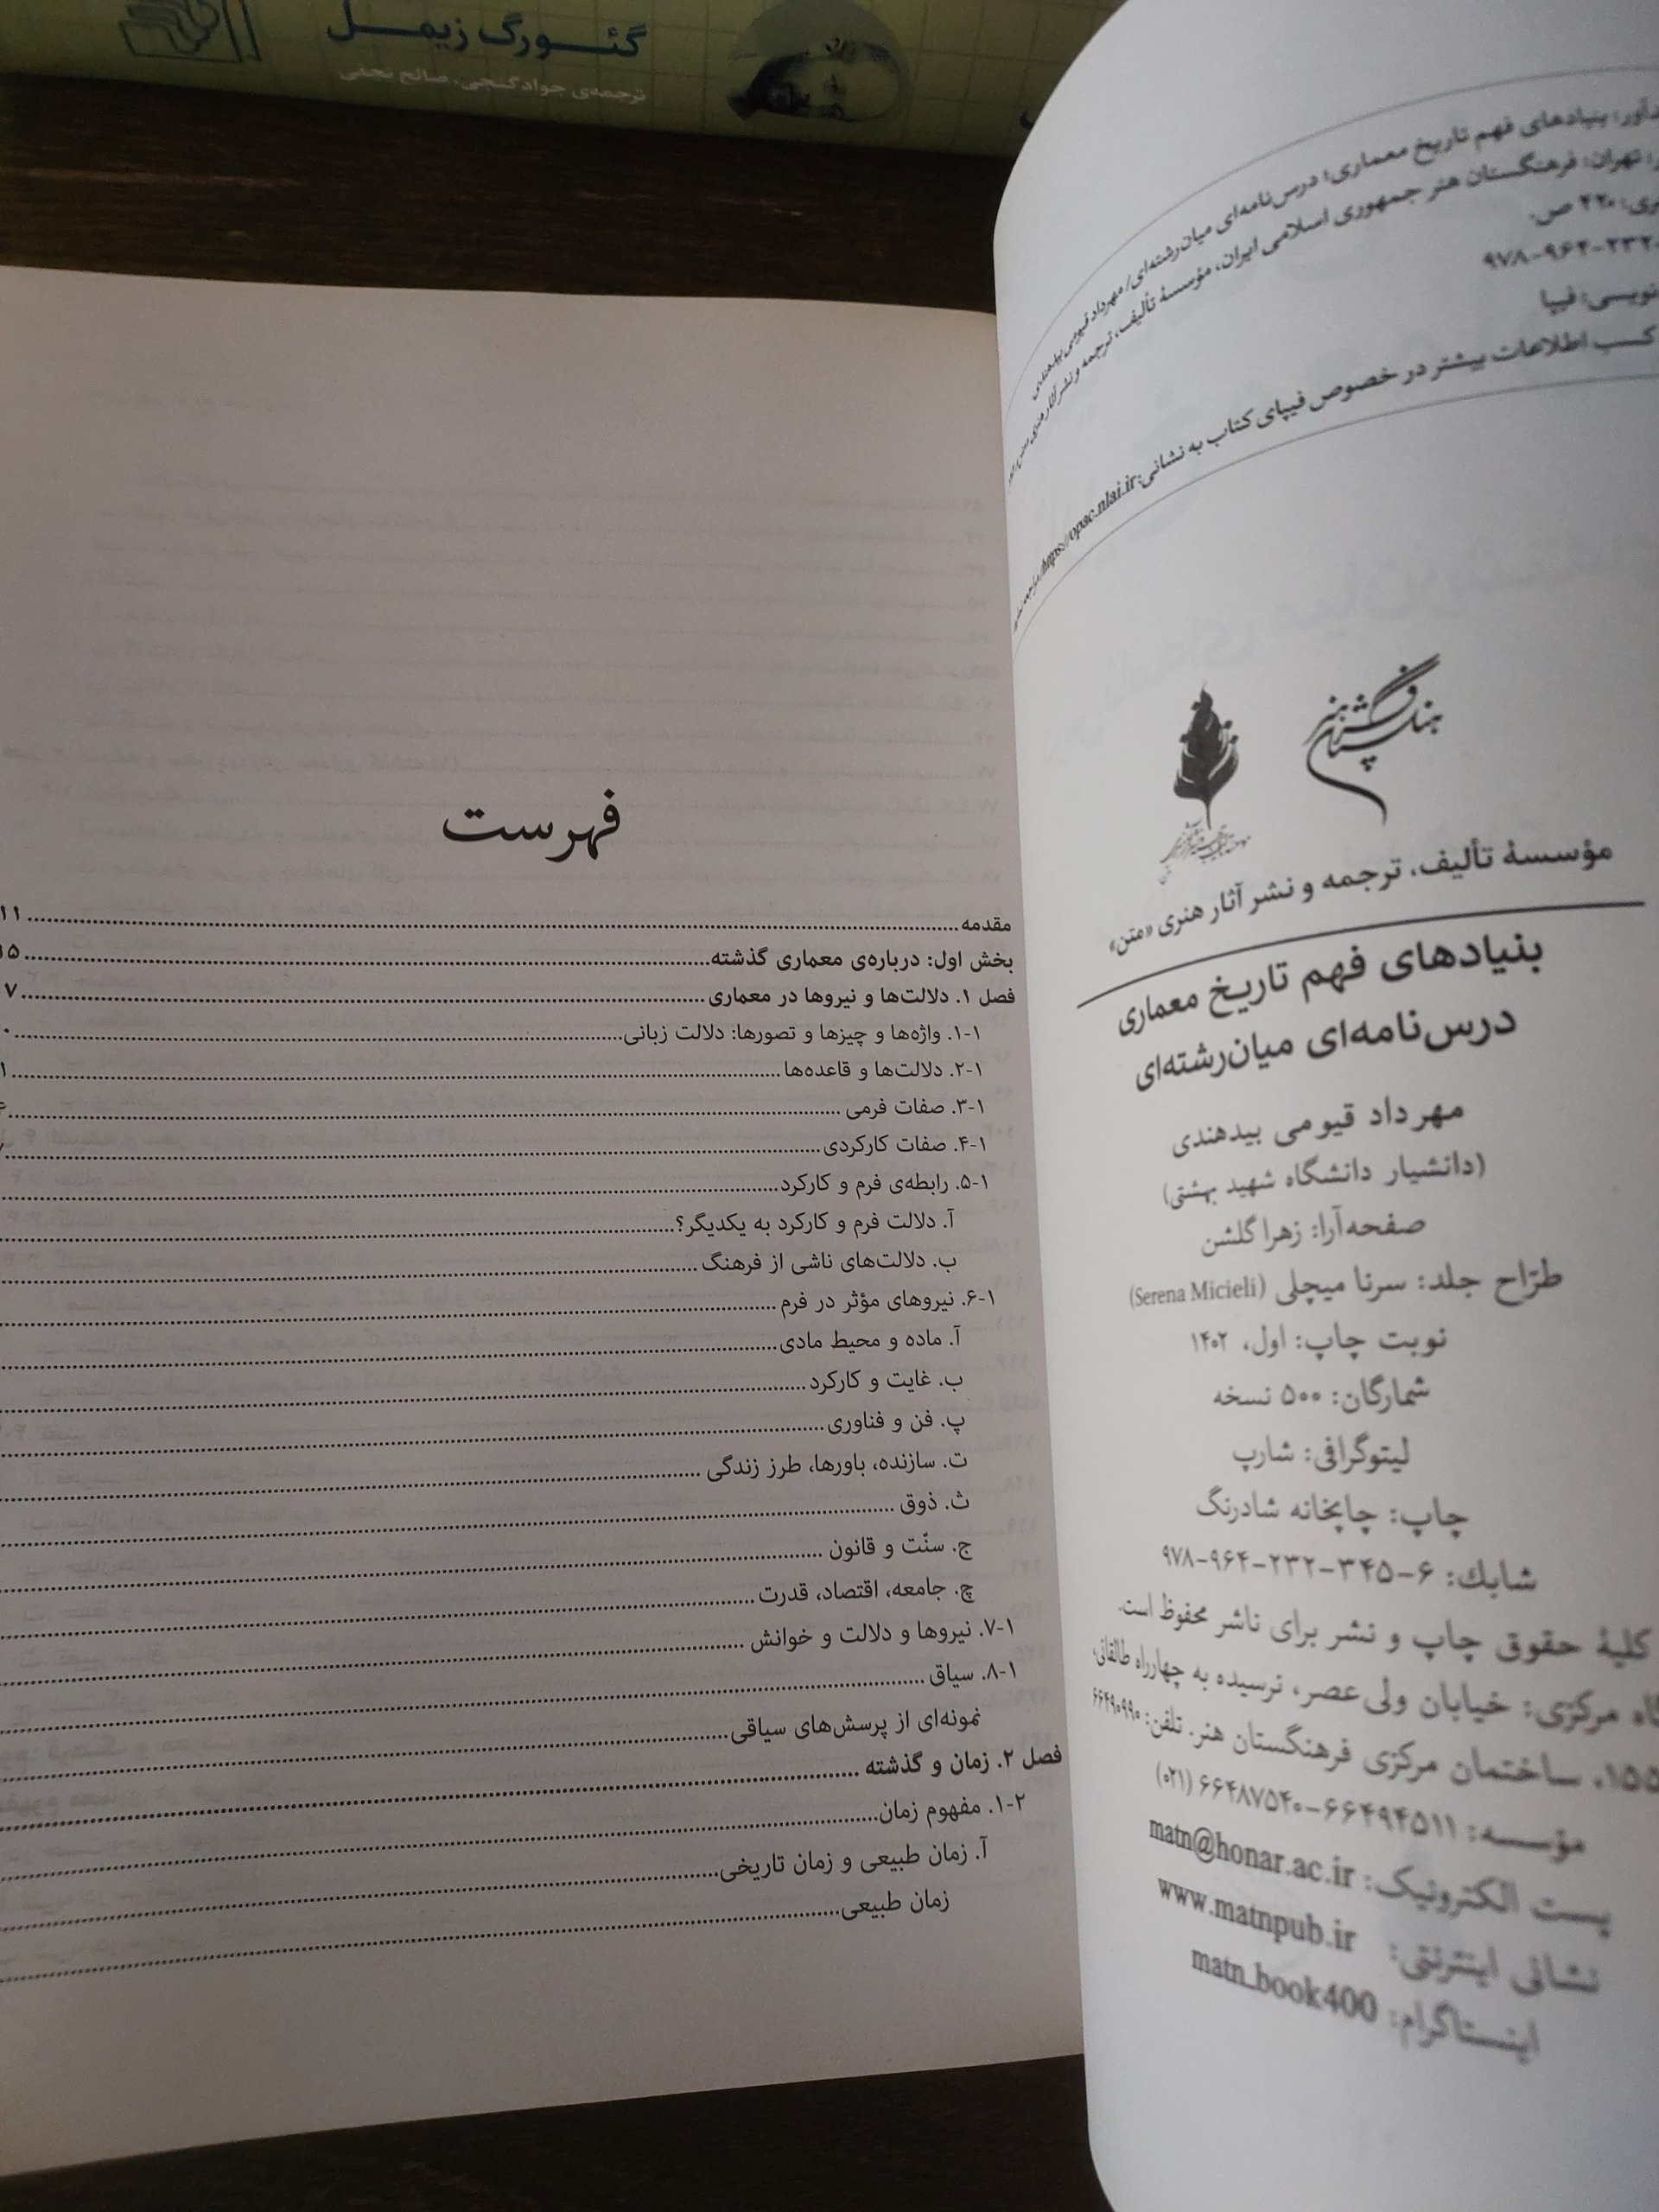 گئورگ زیمل
ترجمه‌ی جواد گنجی، صالح نجفی
بنیادهای فهم تاریخ معماری؛ درس‌نامه‌ای میان‌رشته‌ای/ مهرداد قیومی بیدهندی
تهران: فرهنگستان هنر جمهوری اسلامی ایران، مؤسسهٔ تألیف، ترجمه و نشر آثار هنری
۲۲۰ ص.
۹۷۸-۹۶۴-۲۳۲-
فیپا
کسب اطلاعات بیشتر در خصوص فیپای کتاب به نشانی: https://opac.nlai.ir
فرهنگستان هنر
مؤسسهٔ تألیف، ترجمه و نشر آثار هنری «متن»
بنیادهای فهم تاریخ معماری
درس‌نامه‌ای میان‌رشته‌ای
مهرداد قیومی بیدهندی
(دانشیار دانشگاه شهید بهشتی)
صفحه‌آرا: زهرا گلشن
طرّاح جلد: سرنا میچلی (Serena Micieli)
نوبت چاپ: اول، ۱۴۰۲
شمارگان: ۵۰۰ نسخه
لیتوگرافی: شارپ
چاپ: چاپخانه شادرنگ
شابك: ۶-۳۴۵-۲۳۲-۹۶۴-۹۷۸
کلیهٔ حقوق چاپ و نشر برای ناشر محفوظ است.
مرکزی: خیابان ولی‌عصر، نرسیده به چهارراه طالقانی،
ساختمان مرکزی فرهنگستان هنر. تلفن: ۶۶۴۹۰۹۹۰
مؤسسه: ۶۶۴۹۴۵۱۱-۶۶۴۸۷۵۴۰ (۰۲۱)
پست الکترونیک: matn@honar.ac.ir
نشانی اینترنتی: www.matnpub.ir
اینستاگرام: matn_book400
فهرست
مقدمه ........ ۱۱
بخش اول: درباره‌ی معماری گذشته ........ ۱۵
فصل ۱. دلالت‌ها و نیروها در معماری ........ ۷
۱-۱. واژه‌ها و چیزها و تصورها: دلالت زبانی ........ ۰
۲-۱. دلالت‌ها و قاعده‌ها ........ ۱
۳-۱. صفات فرمی ........
۴-۱. صفات کارکردی ........
۵-۱. رابطه‌ی فرم و کارکرد ........
آ. دلالت فرم و کارکرد به یکدیگر؟ ........
ب. دلالت‌های ناشی از فرهنگ ........
۶-۱. نیروهای مؤثر در فرم ........
آ. ماده و محیط مادی ........
ب. غایت و کارکرد ........
پ. فن و فناوری ........
ت. سازنده، باورها، طرز زندگی ........
ث. ذوق ........
ج. سنّت و قانون ........
چ. جامعه، اقتصاد، قدرت ........
۷-۱. نیروها و دلالت و خوانش ........
۸-۱. سیاق ........
نمونه‌ای از پرسش‌های سیاقی ........
فصل ۲. زمان و گذشته ........
۱-۲. مفهوم زمان ........
آ. زمان طبیعی و زمان تاریخی ........
زمان طبیعی ........